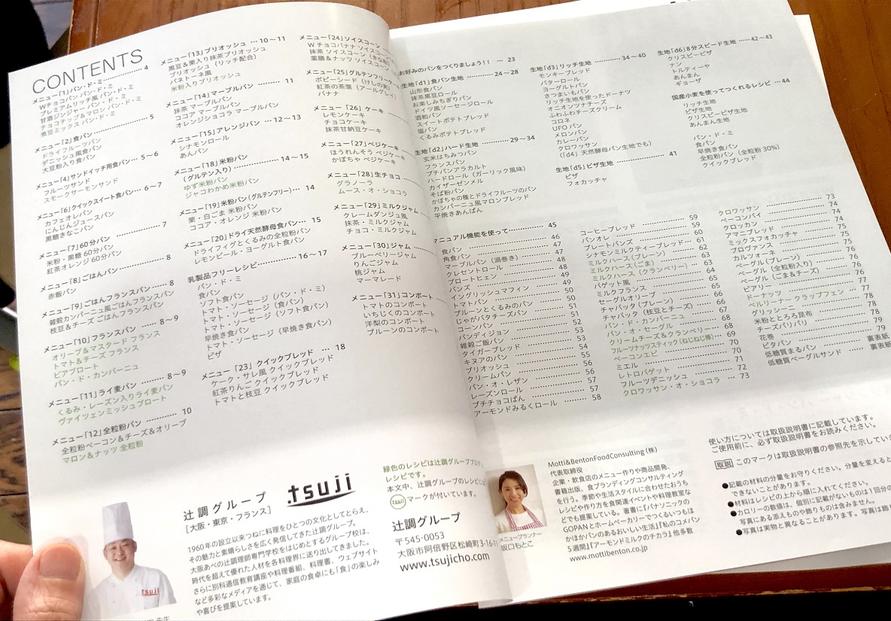 CONTENTS
メニュー「1」パン・ド・ミ 4
Wチョコパン・ド・ミ
プレミアムリッチ風パン・ド・ミ
メニュー「2」食パン 5
ドライフルーツパン
デニッシュ風食パン
大豆粉入り食パン
メニュー「4」サンドイッチ用食パン 5~6
フルーツサンド
スモークサーモンサンド
メニュー「6」クイックスイート食パン 6~7
カフェオレパン
にんじんジュースパン
黒糖きなこパン
メニュー「7」60分パン 7
米粉・黒糖 60分パン
紅茶オレンジ 60分パン
メニュー「8」ごはんパン 8
赤飯パン
メニュー「9」ごはんフランスパン 8
雑穀カンパーニュ風ごはんフランスパン
枝豆&チーズ ごはんフランスパン
メニュー「10」フランスパン 8~9
オリーブ&マスタード フランス
トマト&チーズ フランス
ビアブロート
パン・ド・カンパーニュ
メニュー「11」ライ麦パン 8~9
くるみ・レーズン入りライ麦パン
ヴァイツェンミッシュブロート
メニュー「12」全粒粉パン 10
全粒粉ベーコン&チーズ&オリーブ
マロン&ナッツ 全粒粉
メニュー「13」ブリオッシュ 10~11
黒豆&栗入り抹茶ブリオッシュ
ブリオッシュ (リッチ配合)
パネトーネ風
米粉入りブリオッシュ
メニュー「14」マーブルパン 11
抹茶 マーブルパン
ココア マーブルパン
オレンジショコラ マーブルパン
メニュー「15」アレンジパン 12~13
シナモンロール
あんパン
メニュー「18」米粉パン
(グルテン入り) 14~15
ゆず米粉パン
ジャコわかめ米粉パン
メニュー「19」米粉パン(グルテンフリー) 14
栗・白ごま 米粉パン
ココア・オレンジ 米粉パン
メニュー「20」ドライ天然酵母食パン 15
ドライフィグとくるみの全粒粉パン
レモンピール・ヨーグルト食パン
乳製品フリーレシピ 16~17
パン・ド・ミ
食パン
トマト・ソーセージ (パン・ド・ミ)
トマト・ソーセージ (食パン)
トマト・ソーセージ (ソフト食パン)
早焼き食パン
トマト・ソーセージ (早焼き食パン)
ピザ
メニュー「23」クイックブレッド 18
ケーク・サレ風 クイックブレッド
紅茶りんご クイックブレッド
トマトと枝豆 クイックブレッド
メニュー「24」ソイスコーン
Wチョコバナナ ソイスコーン
抹茶 ソイスコーン
黒糖&ナッツ ソイスコーン
メニュー「25」グルテンフリー
ポピーシード (けしの実)
紅茶の茶葉 (アールグレイ)
バナナ
メニュー「26」ケーキ
レモンケーキ
チョコケーキ
抹茶甘納豆ケーキ
メニュー「27」ベジケーキ
ほうれんそう ベジケーキ
かぼちゃ ベジケーキ
メニュー「28」生チョコ
グラノーラ
ムース・オ・ショコラ
メニュー「29」ミルクジャム
クレームダンジュ風
抹茶・ミルクジャム
チョコ・ミルクジャム
メニュー「30」ジャム
ブルーベリージャム
りんごジャム
桃ジャム
マーマレード
メニュー「31」コンポート
トマトのコンポート
いちじくのコンポート
洋梨のコンポート
プルーンのコンポート
お好みのパンをつくりましょう!! 23
生地「d1」食パン生地 24~28
山形食パン
抹茶黒豆ロール
お楽しみちぎりパン
ドイツ風ソーセージロール
酒粕パン
スイートポテトブレッド
塩パン
くるみポテトブレッド
生地「d2」ハード生地 29~34
玄米はちみつパン
フランスパン
プチパンアラカルト
ハードロール (ガーリック風味)
カイザーゼンメル
そば粉パン
かぼちゃの種とドライフルーツのパン
カンパーニュ風マロンブレッド
早焼きあんぱん
生地「d3」リッチ生地 34~40
モンキーブレッド
バターロール
ヨーグルトパン
さつまいもパン
リッチ生地を使ったドーナツ
オニオンツナチーズ
ふわふわチーズクリーム
コロネ
UFOパン
メロンパン
カレーパン
クロワッサン
(「d4」天然酵母パン生地でも)
生地「d5」ピザ生地 41
ピザ
フォカッチャ
生地「d6」8分スピード生地 42~43
クリスピーピザ
ナン
トルティーヤ
あんまん
ギョーザ
国産小麦を使ってつくれるレシピ 44
リッチ生地
ピザ生地
クリスピーピザ生地
あんまん生地
パン・ド・ミ
食パン
早焼き食パン
全粒粉パン (全粒粉 30%)
クイックブレッド
マニュアル機能を使って 45
食パン 46
食パン 47
マーブルパン (渦巻き) 47
クレセントロール 48
ブロートヒェン 48
ベーグル
イングリッシュマフィン 49
トマトパン 50
プルーンとくるみのパン 50
じゃがバタチーズパン 51
コーンパン 51
パンディジョン 52
雑穀ご飯パン 53
タイガーブレッド 53
キヌアのパン 54
ブリオッシュ 55
クリームパン 55
パン・オ・レザン 56
レーズンパン 57
プチチョコぱん 57
アーモンドみるくロール 58
コーヒーブレッド 59
パンオレ 59
プレートパンズ 60
シナモンミルクティーブレッド 61
ミルクハース (プレーン) 62
ミルクハース (ごま) 63
ミルクハース (クランベリー) 63
バゲット風 64
ミルフランス 65
セーグルオリーブ 65
チャバッタ (プレーン) 66
チャバッタ (枝豆とチーズ) 66
パン・ド・カンパーニュ 67
パン・オ・セーグル 67
クリームチーズ&クランベリー 68
フルーツナッツスティック (ねじねじ棒) 69
ベーコンエピ 70
ミエル 70
レトロバゲット 71
フルーツデニッシュ 72
クロワッサン・オ・ショコラ 73
クロワッサン 73
ベーコンパイ 74
クロッカン 74
クアマニブレッド
ミックスフォカッチャ
プロヴァンス
カルツォーネ
ベーグル (プレーン)
ベーグル (全粒粉入り)
ベーグル (ごま&チーズ)
ピアリー
ドーナッツ
ベルリーナークラップフェン 77
米粉とところ昆布
グリッシーニ
チーズバリバリ
花巻
ピタパン
低糖質まるパン 裏表紙
低糖質ベーグルサンド
緑色のレシピは辻調グループ
レシピです。
本文中、辻調グループのレシピには
マークが付いています。
辻調グループ
[大阪・東京・フランス]
tsuji
1960年の設立以来つねに料理をひとつの文化としてとらえ、
その魅力と素晴らしさを広く発信してきた辻調グループ。
大阪あべの辻調理師専門学校をはじめとするグループ校は、
時代を超えて優れた人材を各料理界に送り出してきました。
さらに別科通信教育講座や料理番組、料理書、ウェブサイト
など多彩なメディアを通じて、家庭の食卓にも「食」の楽しみ
や喜びを提案しています。
辻調グループ
〒545-0053
大阪市阿倍野区松崎町3-16-
www.tsujicho.com
メニュープランナー
坂口もとこ
Motti&BentonFoodConsulting (株)
代表取締役
企業・飲食店のメニュー作りや商品開発、
書籍出版、食ブランディングコンサルティング
を行う。季節や生活スタイルに合わせたおうち
レシピや作り方を食関連イベントや料理教室な
どでも提案している。著書に『パナソニックの
GOPANとホームベーカリーでつくるいつもほ
かほかパンのあるおいしい生活』『私のコメパン
5週間』『アーモンドミルクのチカラ』他多数
www.mottibenton.co.jp
使い方については取扱説明書に記載しています。
ご使用前に、必ず取扱説明書をお読みください。
取説 このマークは取扱説明書の参照先を示してい
●記載の材料の分量をお守りください。分量を変えると
できないことがあります。
●材料はレシピの上から順に入れてください。
●カロリーの数値は、個別に記載がないものは1回分の
写真にある添えものや飾りものは含みません。
●写真は実物と異なることがあります。写真は